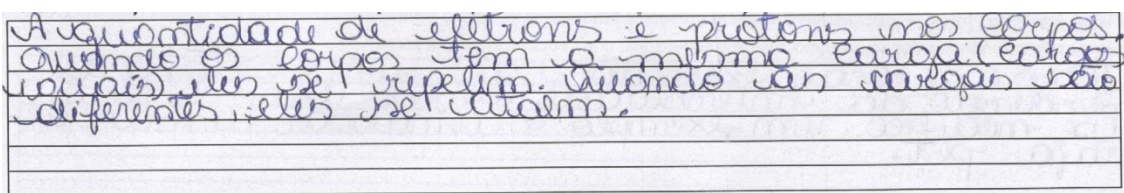 A quantidade de elétrons e prótons nos corpos.
Quando os corpos tem a mesma carga, cargas
iguais eles se repelim. Quando as cargas são
diferentes, eles se atraem.